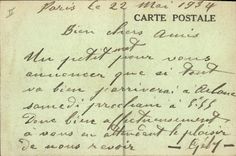 Paris le 22 Mai 1934
CARTE POSTALE
Bien chers Amis
mot
Un petit pour vous
annoncer que si tout
va bien j'arriverai à
samedi prochain à
Donc bien affectueusement
à vous en attendant le plaisir
de vous revoir